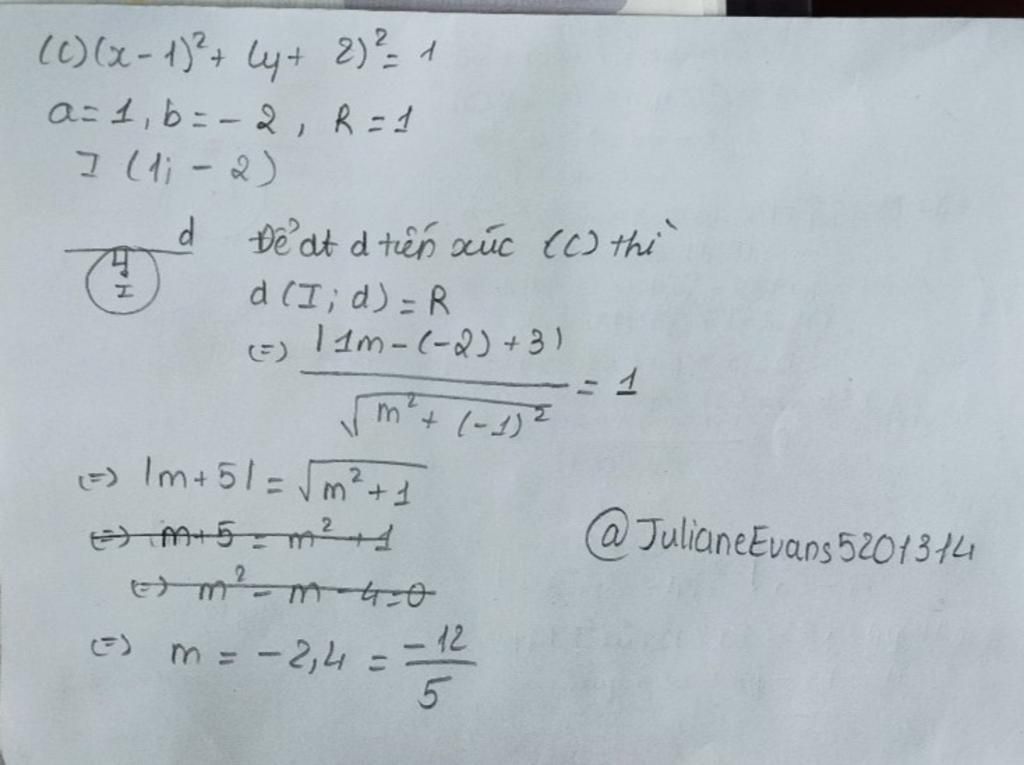 (C) (x - 1)² + (y + 2)² = 1
a = 1, b = - 2, R = 1
I (1; - 2)
d
I
Để đt d tiến xúc (C) thì
d (I; d) = R
(=) |1m - (-2) + 3| / √(m² + (-1)²) = 1
(=) |m + 5| = √(m² + 1)
(=) m + 5 = m² + 1
(=) m² - m - 4 = 0
(=) m = - 2,4 = -12/5
@JulianeEvans5201314